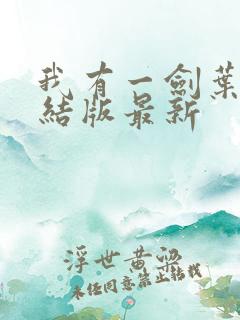 我有一劍葉
結版最新
浮世黄梁
未经同意禁止转载